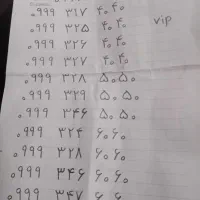 ۰۹۹۹ ۳۱۷ ۴۰۴۰
vip
۰۹۹۹ ۳۲۵ ۴۰۴۰
۰۹۹۹ ۳۲۶ ۴۰۴۰
۰۹۹۹ ۳۲۷ ۴۰۴۰
۰۹۹۹ ۳۲۸ ۵۰۵۰
۰۹۹۹ ۳۲۹ ۵۰۵۰
۰۹۹۹ ۳۴۶ ۵۰۵۰
۰۹۹۹ ۳۲۴ ۶۰۶۰
۰۹۹۹ ۳۲۸ ۶۰۶۰
۰۹۹۹ ۳۴۶ ۶۰۶۰
۰۹۹۹ ۳۴۷ ۶۰۶۰